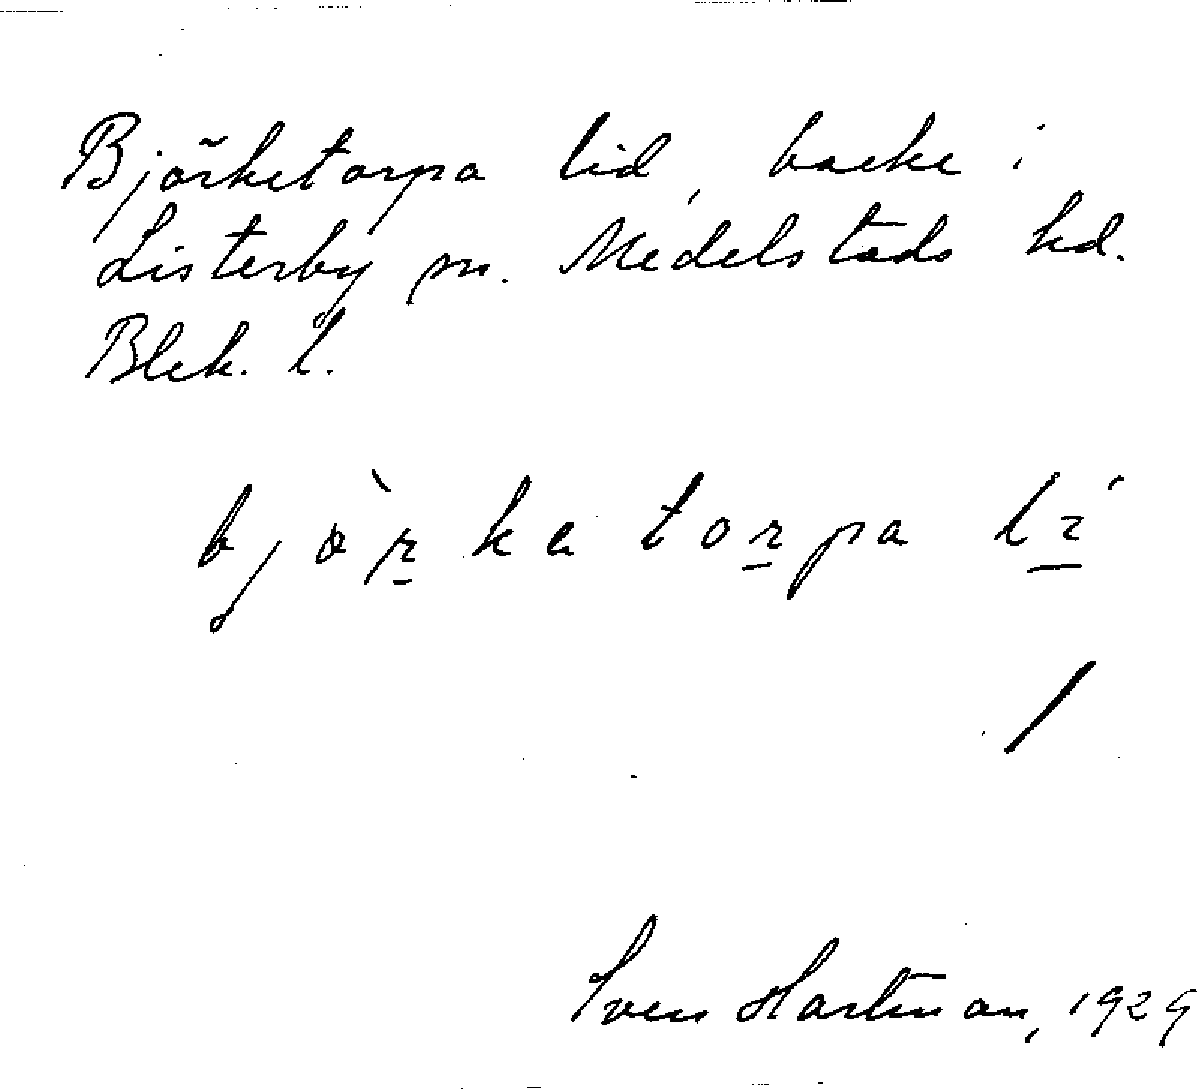 Björketorpa lid, backe i
Listerby sn. Medelstads hd.
Blek. l.
bjö̀r̠ka tor̠pa lí̠
/
Sven Hartman, 1929